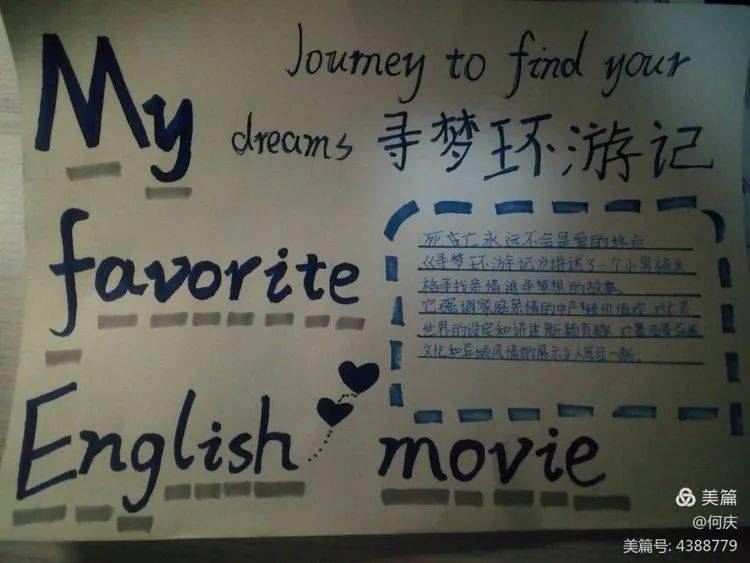 My
Journey to find your
dreams 寻梦环游记
favorite
死亡永远不会是爱的终点
《寻梦环游记》讲述了一个小男孩
寻找亲情追寻梦想的故事。
它强调家庭亲情的中产级价值观 对亡灵
世界的设定和讲述新颖有趣 对墨西哥
文化和异域风情的展示令人耳目一新。
English movie
美篇
@何庆
美篇号: 4388779